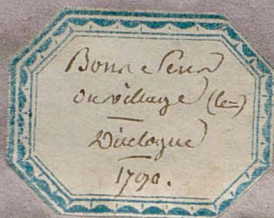 Bon Sens
du village (le)
Dialogue
1790.